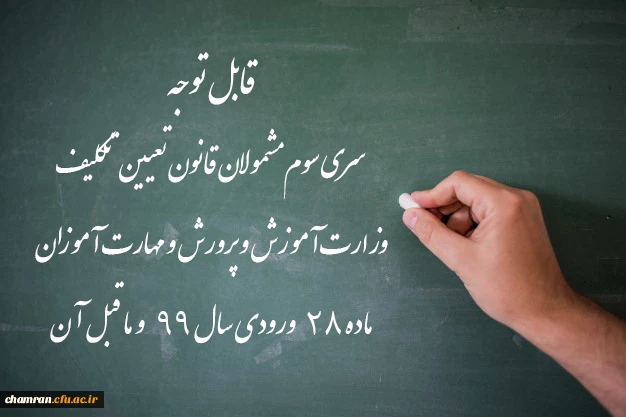 قابل توجه
سری سوم مشمولان قانون تعیین تکلیف
وزارت آموزش و پرورش و مهارت آموزان
ماده ۲۸ ورودی سال ۹۹ و ماقبل آن
chamran.cfu.ac.ir